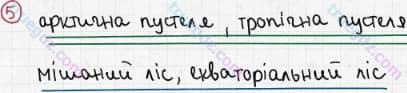 5 арктична пустеля, тропічна пустеля
мішаний ліс, екваторіальний ліс